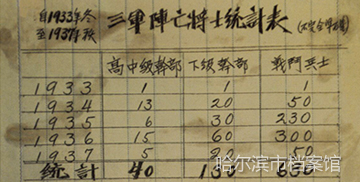 自1933年冬
至1937年秋
三軍陣亡將士統計表
高中級幹部 下級幹部 戰鬥兵士
1933 1 1 1
1934 13 20 50
1935 6 30 230
1936 15 60 300
1937 5 20 50
統計 40
哈尔滨市档案馆